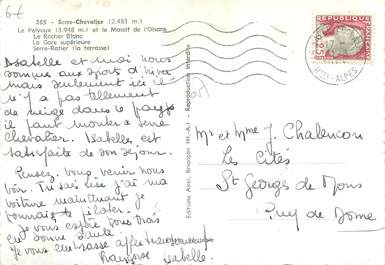 6€
365 - Serre-Chevalier (2.483 m.)
Le Pelvoux (3.948 m.) et le Massif de l'Oisans
Le Rocher Blanc
La Gare supérieure
Serre-Ratier (la terrasse)
Isabelle et moi nous
sommes aux sports d'hiver
mais seulement ici il
n'y a pas tellement
de neige dans le pays
il faut monter à serre
chevalier. Isabelle est
satisfaite de son séjour.
Pensez-vous venir nous
voir. Tu sais que j'ai ma
voiture maintenant je
pourrais piloter.
Je vous espère vous trois
en bonne santé
Je vous embrasse affectueusement
Françoise Isabelle.
Editions André, Briançon (H.-A.) - Reproduction interdite
REPUBLIQUE FRANÇAISE
0,25
HTES-ALPES
Mr et Mme J. Chalencon
Les Cités
St Georges de Mons
Puy de Dome